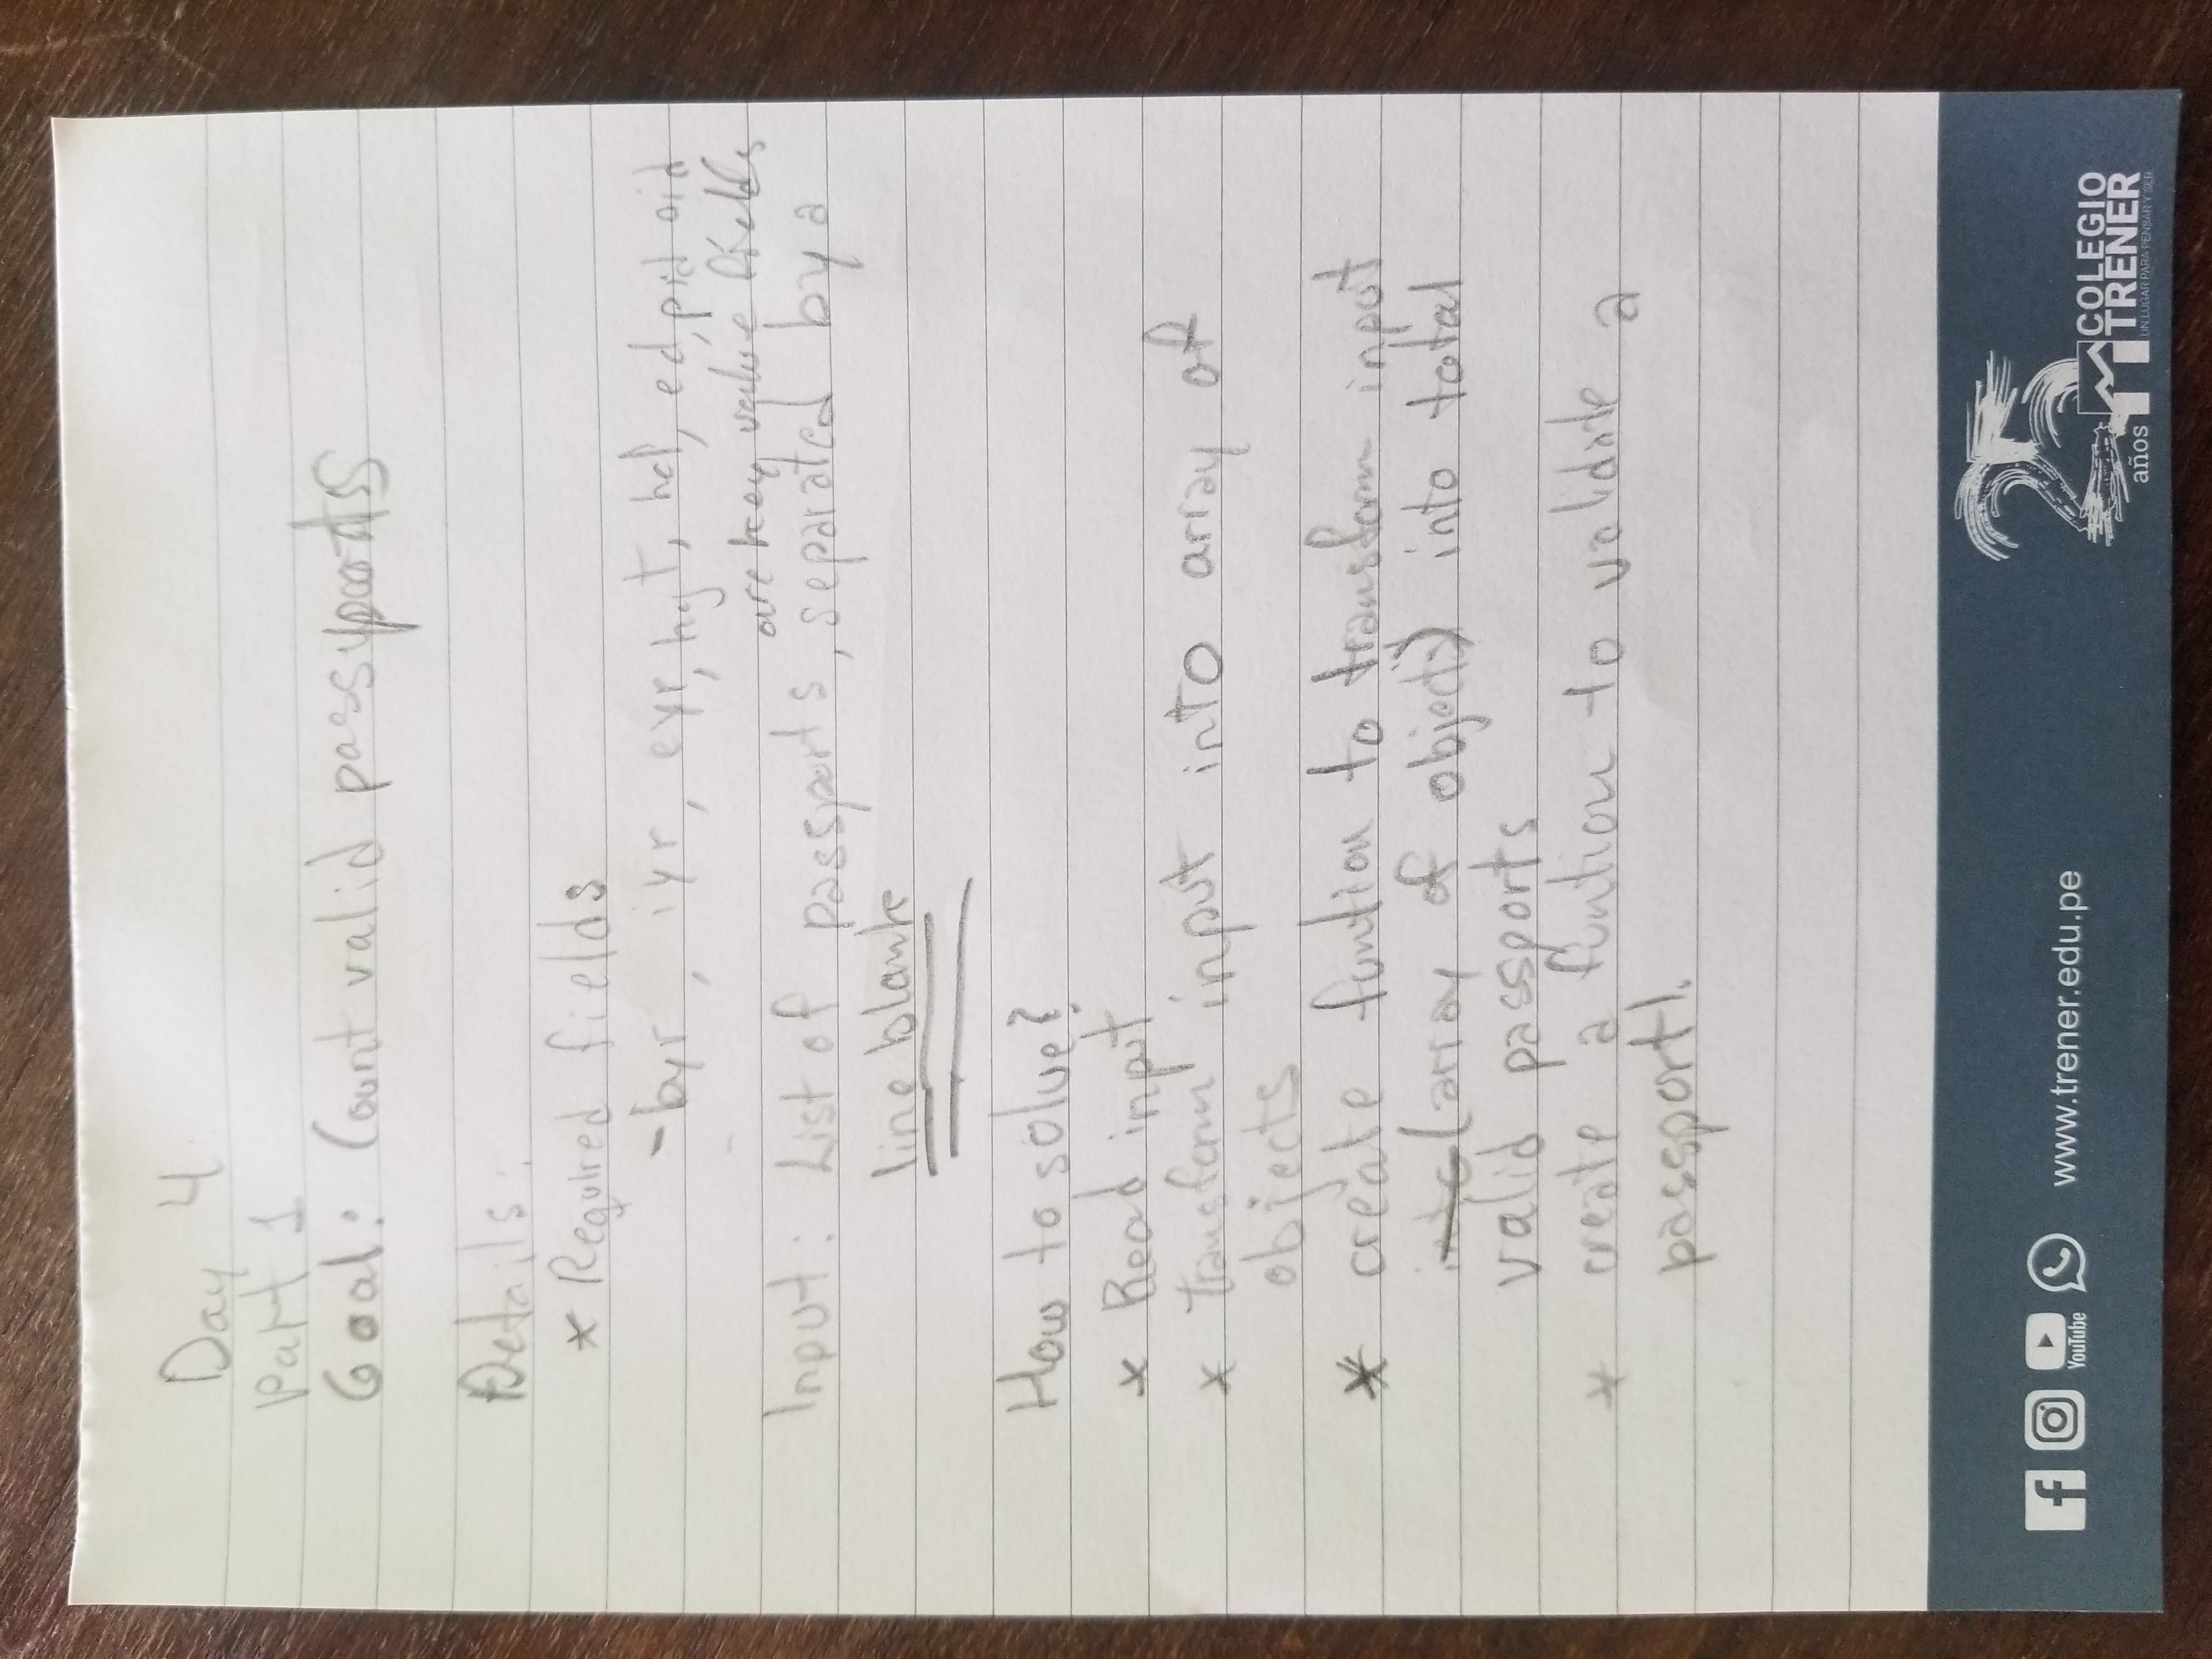 Day 4
Part 1
Goal: Count valid passyports
Details:
* Required fields
-byr, iyr, eyr, hgt, hcl, ed, pid
are key value fields
Input: List of passports, separated by a
line blank
How to solve?
* Read input
* transform input into array of
objects
* create funtion to transform input
into (array of objects) into total
valid passports
* create a funtion to validate a
passport!.
YouTube
www.trener.edu.pe
25
años
COLEGIO
TRENER
UN LUGAR PARA PENSAR Y SER